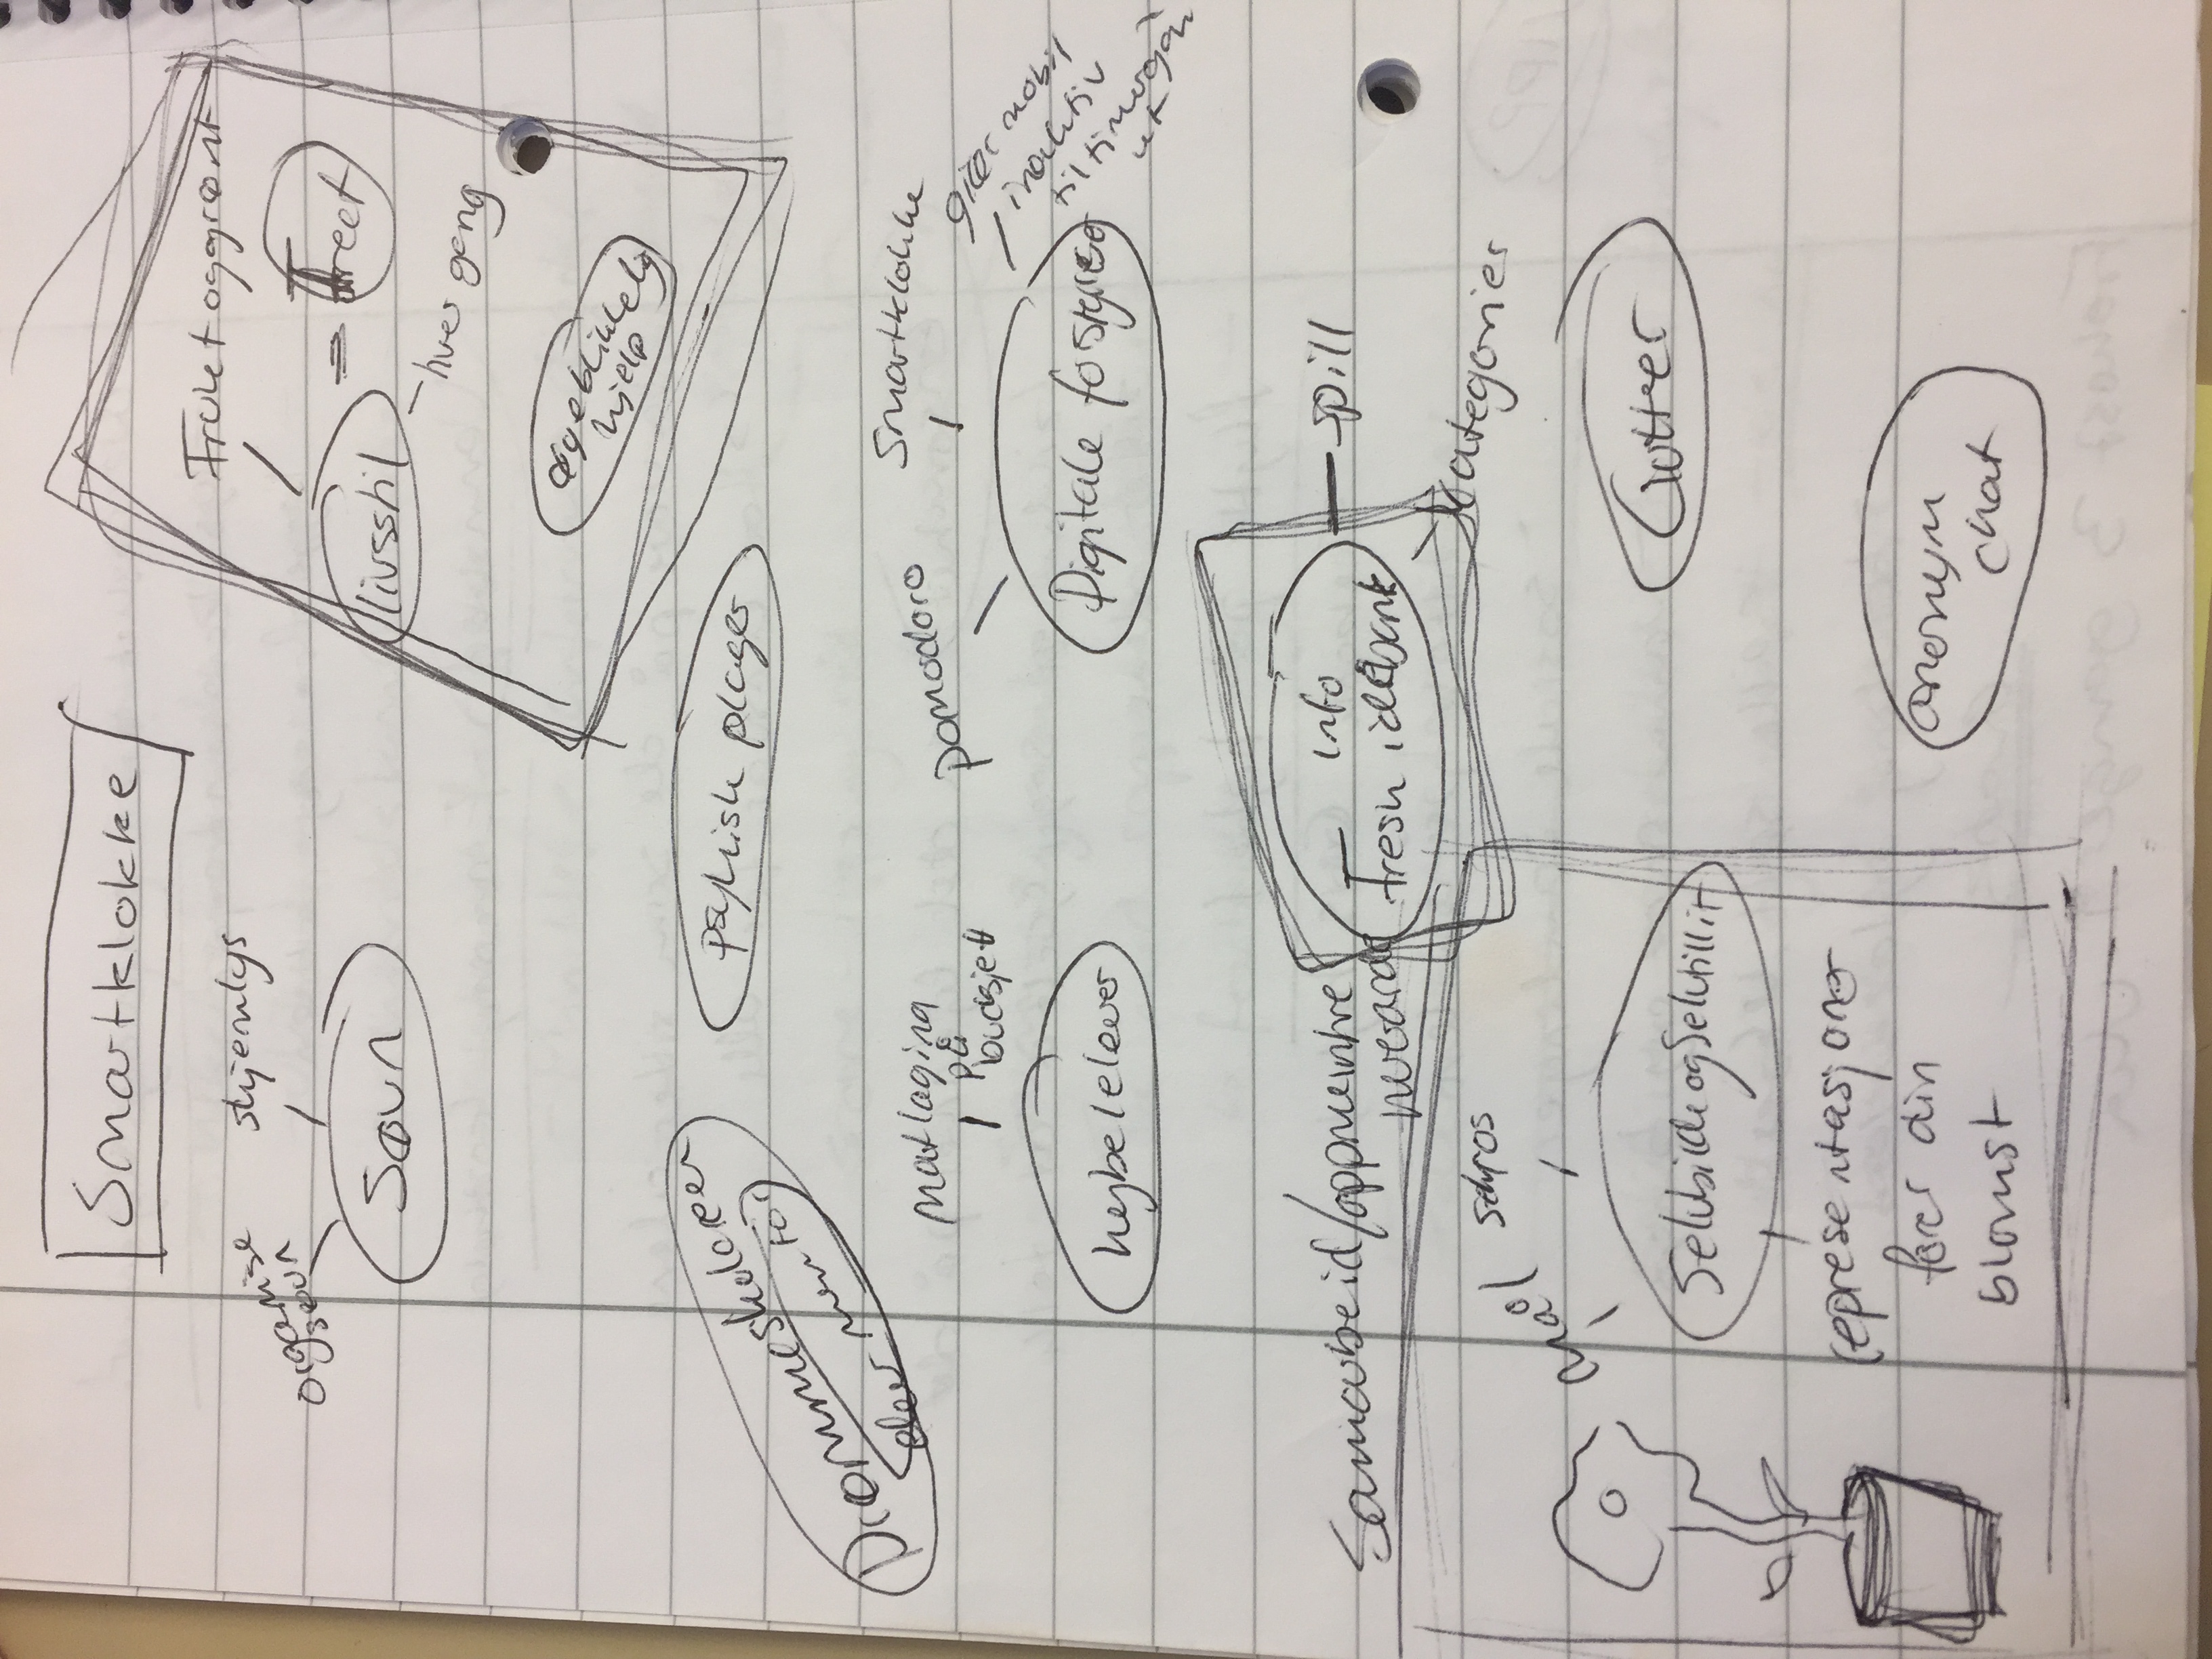 Smartklokke
organise
søvn
skjermlys
Søvn
Frukt og grønt
livsstil = Treet
hver gang
øyeblikkelig
hjelp
Drømmeskolen
elevmentor
psykisk plager
matlaging
på
budsjett
hybelelever
pomodoro
Smartklokke
gjør mobil
inaktiv
til timer går
ut
Digitale forstyrrelser
Samarbeid/oppmuntre
hverandre
Info
Fresh idébank
spill
kategorier
mål
skryt
Selvbilde og Selvtillit
representasjoner
fører din
blomst
Gutter
anonym
chat